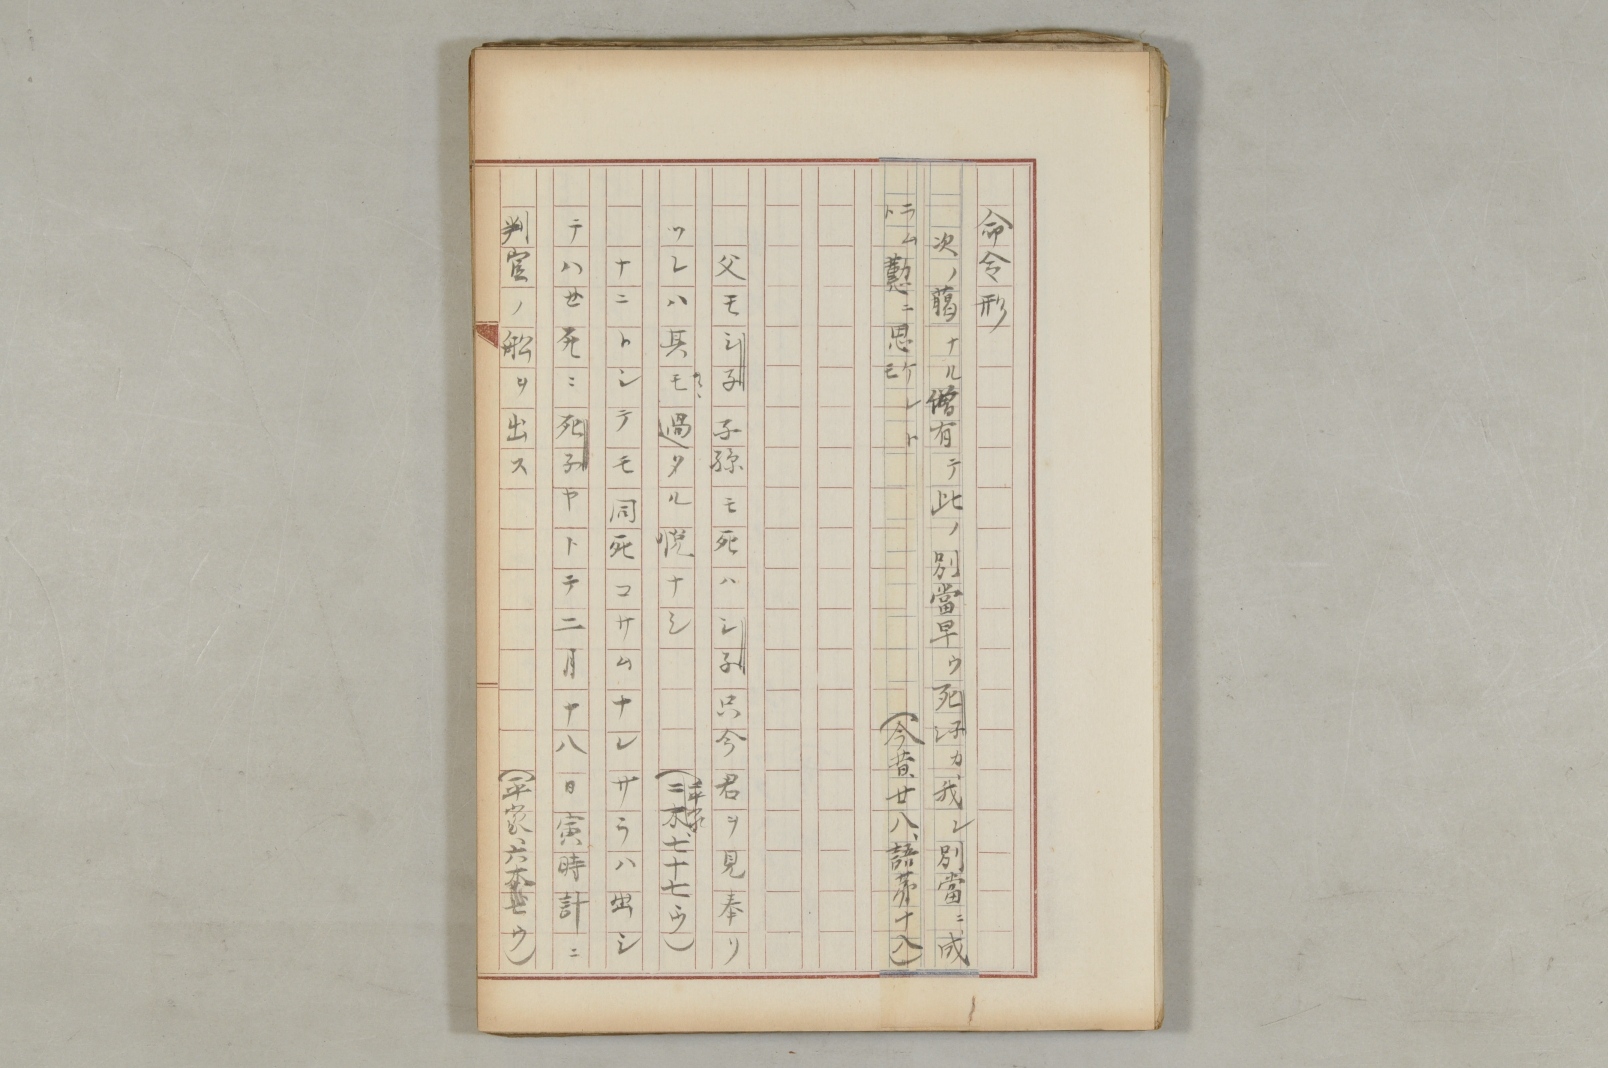 命令形
次ノ臈ナル僧有テ此ノ別當早ウ死ネカシ我レ別當ニ成
ラムト懃ニ思ケレトモ
(今昔廿八、語第十八)
父モシ子子孫モ死ハシ子只今君ヲ見奉リ
ツレハ其モ過タル悦ナシ
(平家二本、七十七ウ)
ナニトシテモ同死コサムナレサラハ出シ
テハセ死ニ死子ヤトテ二月十八日寅時計ニ
判官ノ舩ヲ出ス
(平家、六本